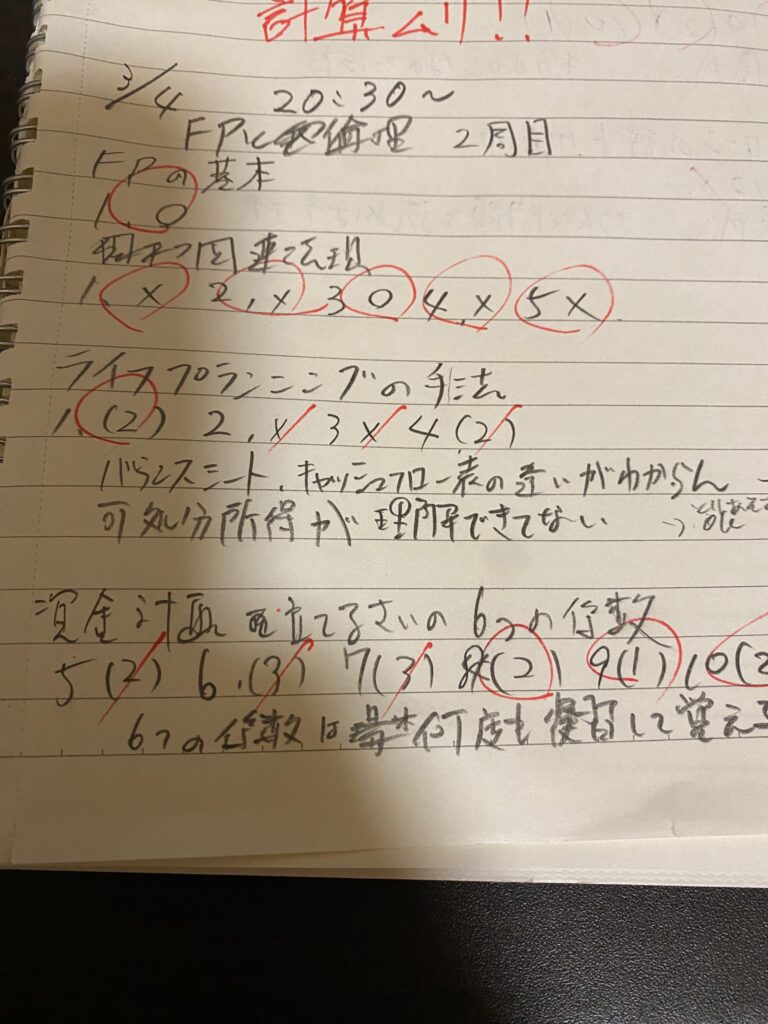 計算ムリ!!
3/4 20:30～
FPと倫理 2周目
FPの基本
1. ○
関連法規
1. × 2. × 3 ○ 4. × 5 ×
ライフプランニングの手法
1. (2) 2. × 3 × 4 (2)
バランスシート、キャッシュフロー表の違いがわからん →
可処分所得が理解できてない →
資金計画を立てるさいの6つの係数
5 (2) 6. (3) 7 (3) 8 (2) 9 (1) 10 (2
6つの係数は 何度も復習して覚える